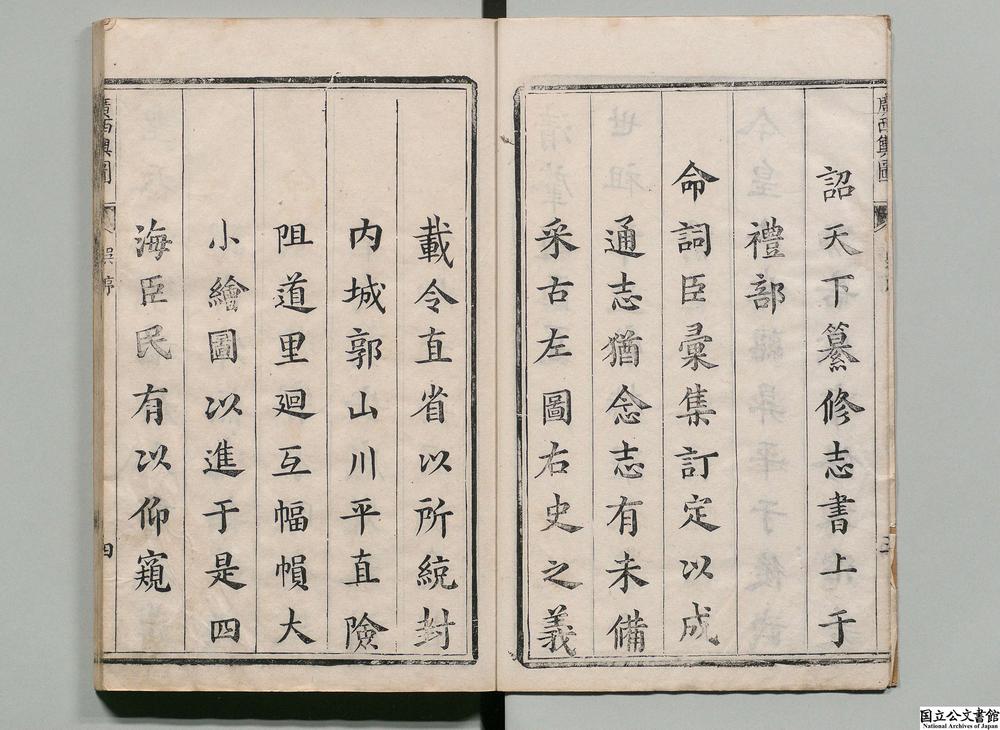 詔天下纂修志書上于
禮部
命詞臣彙集訂定以成
通志猶念志有未備
采古左圖右史之義
載令直省以所統封
內城郭山川平直險
阻道里廻互幅幀大
小繪圖以進于是四
海臣民有以仰窺
廣西輿圖
廣西輿圖
吳序
四
国立公文書館
National Archives of Japan